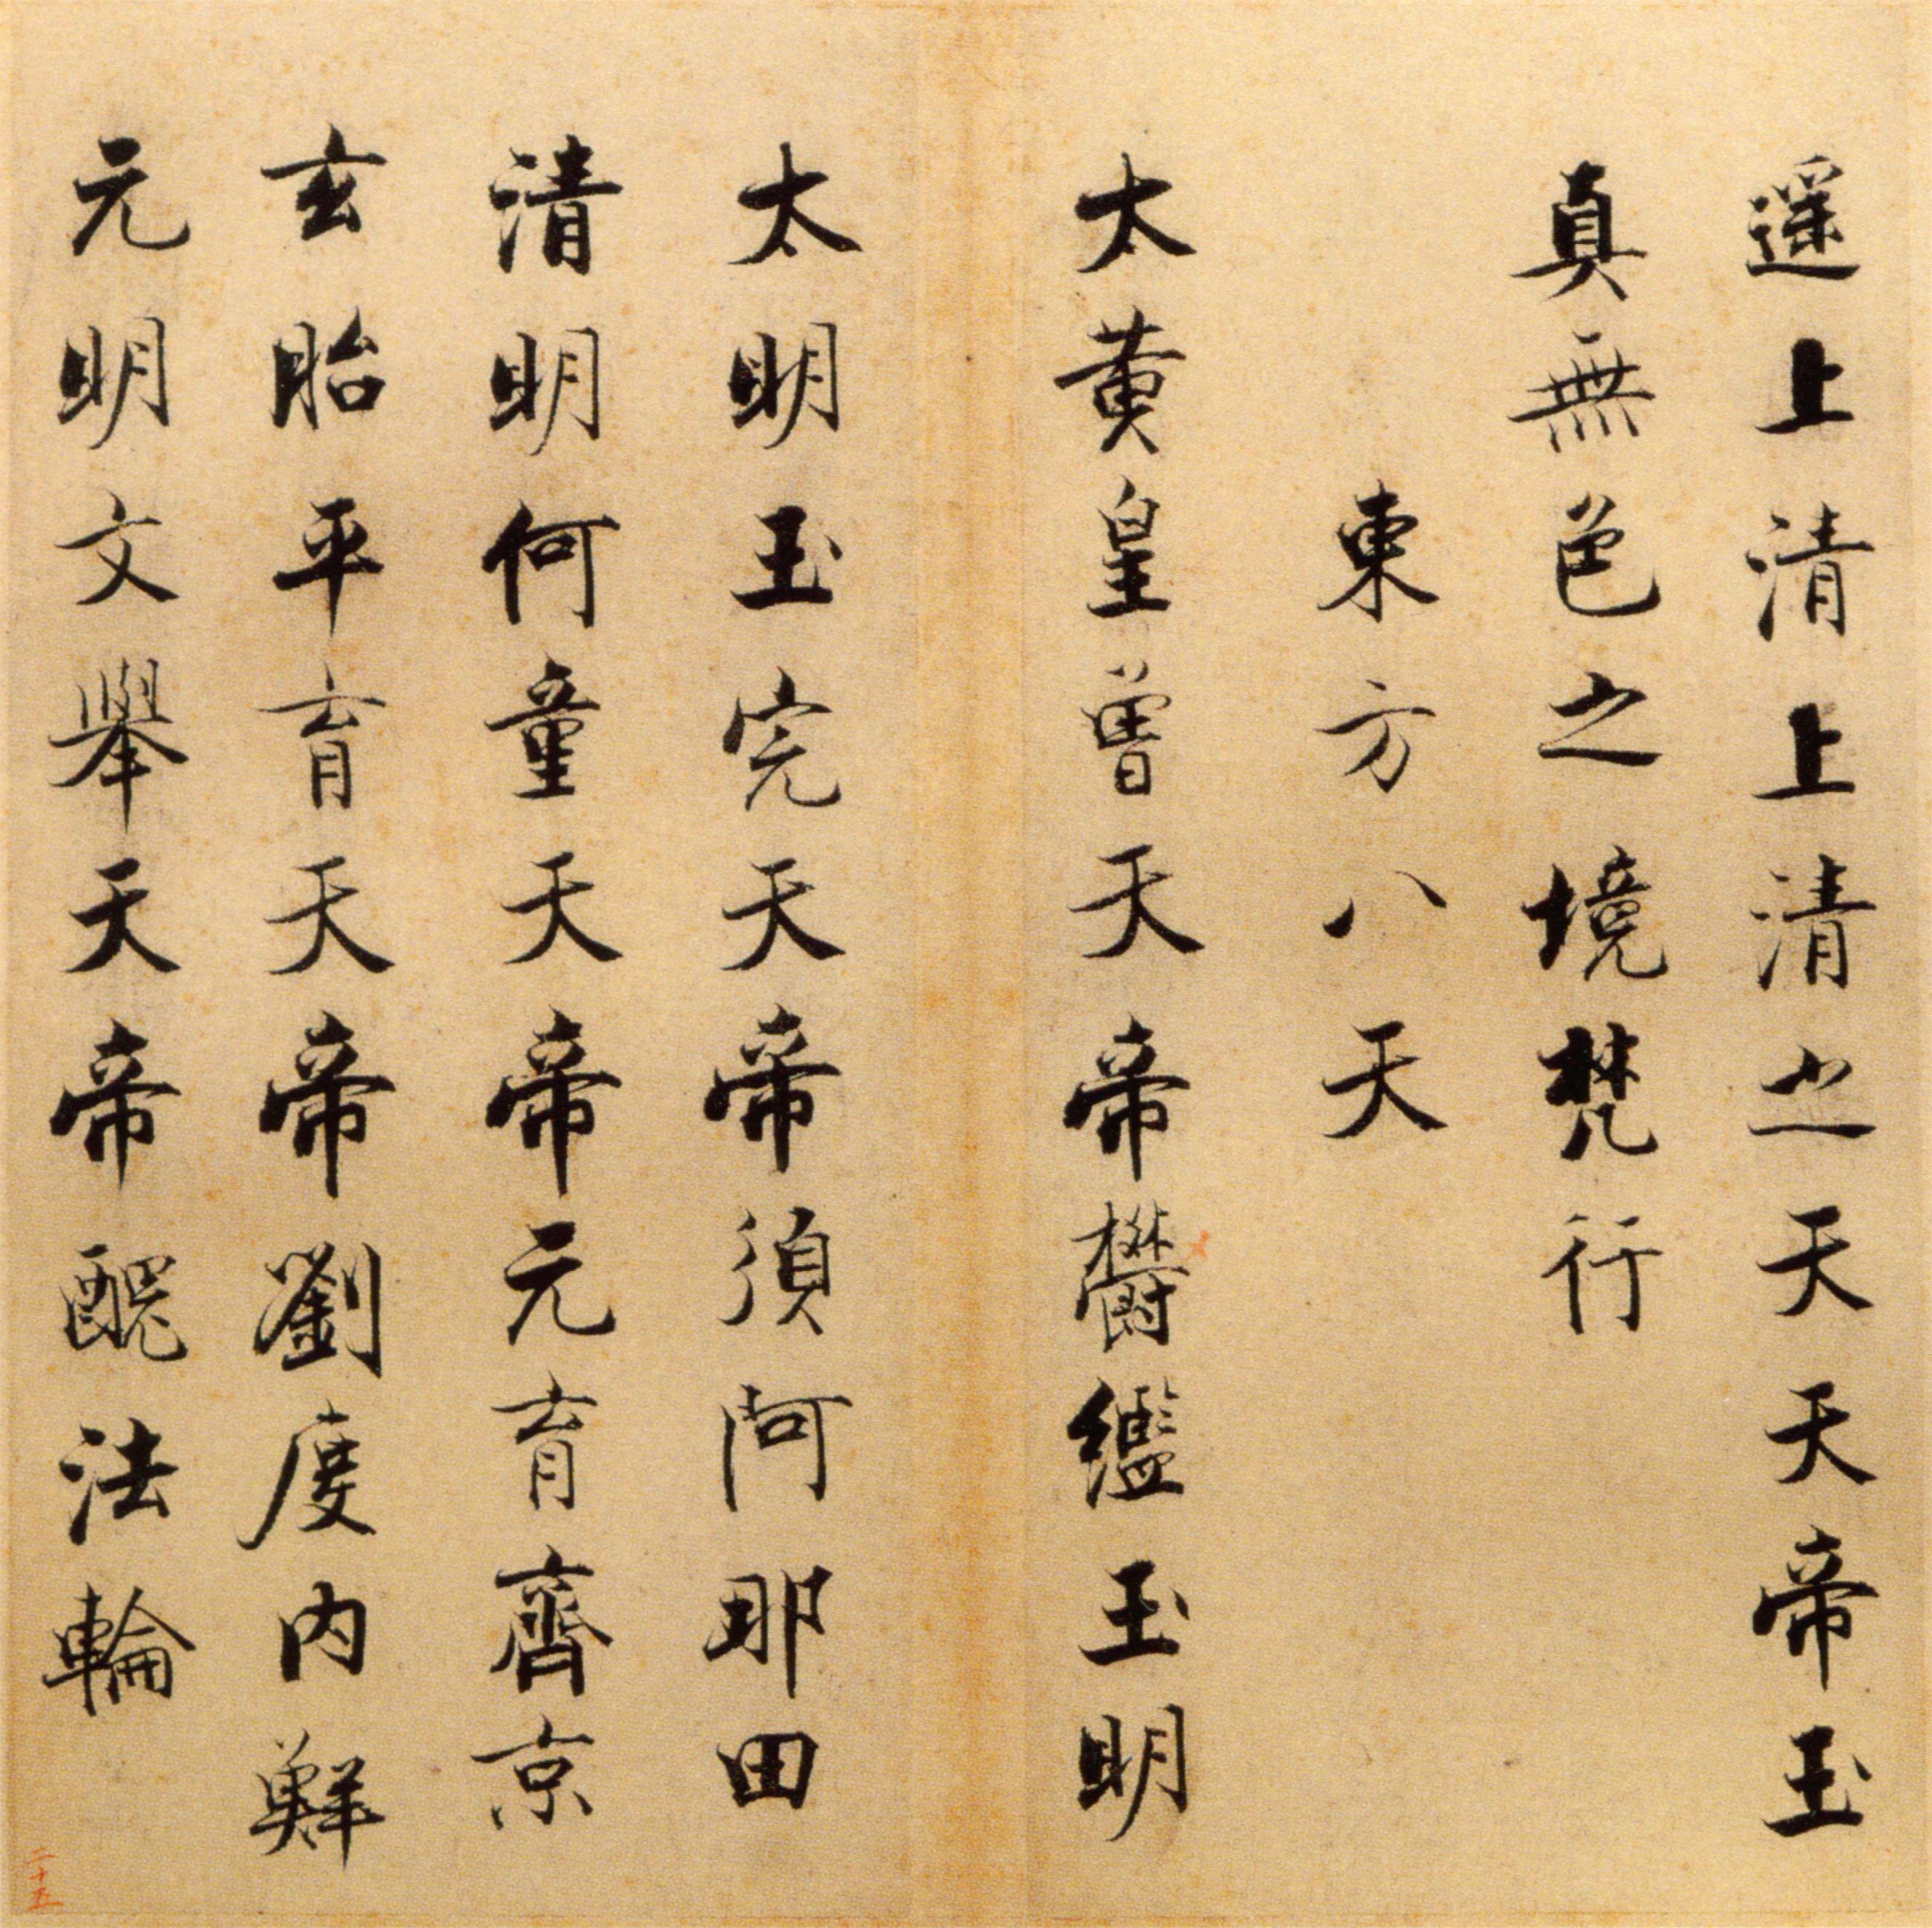 遥上清上清之天天帝玉
真無色之境梵行
東方八天
太黄皇曾天帝欎繿玉明
太明玉完天帝須阿那田
清明何童天帝元育齊京
玄胎平育天帝劉度内鮮
元明文舉天帝醜法輪
二十五